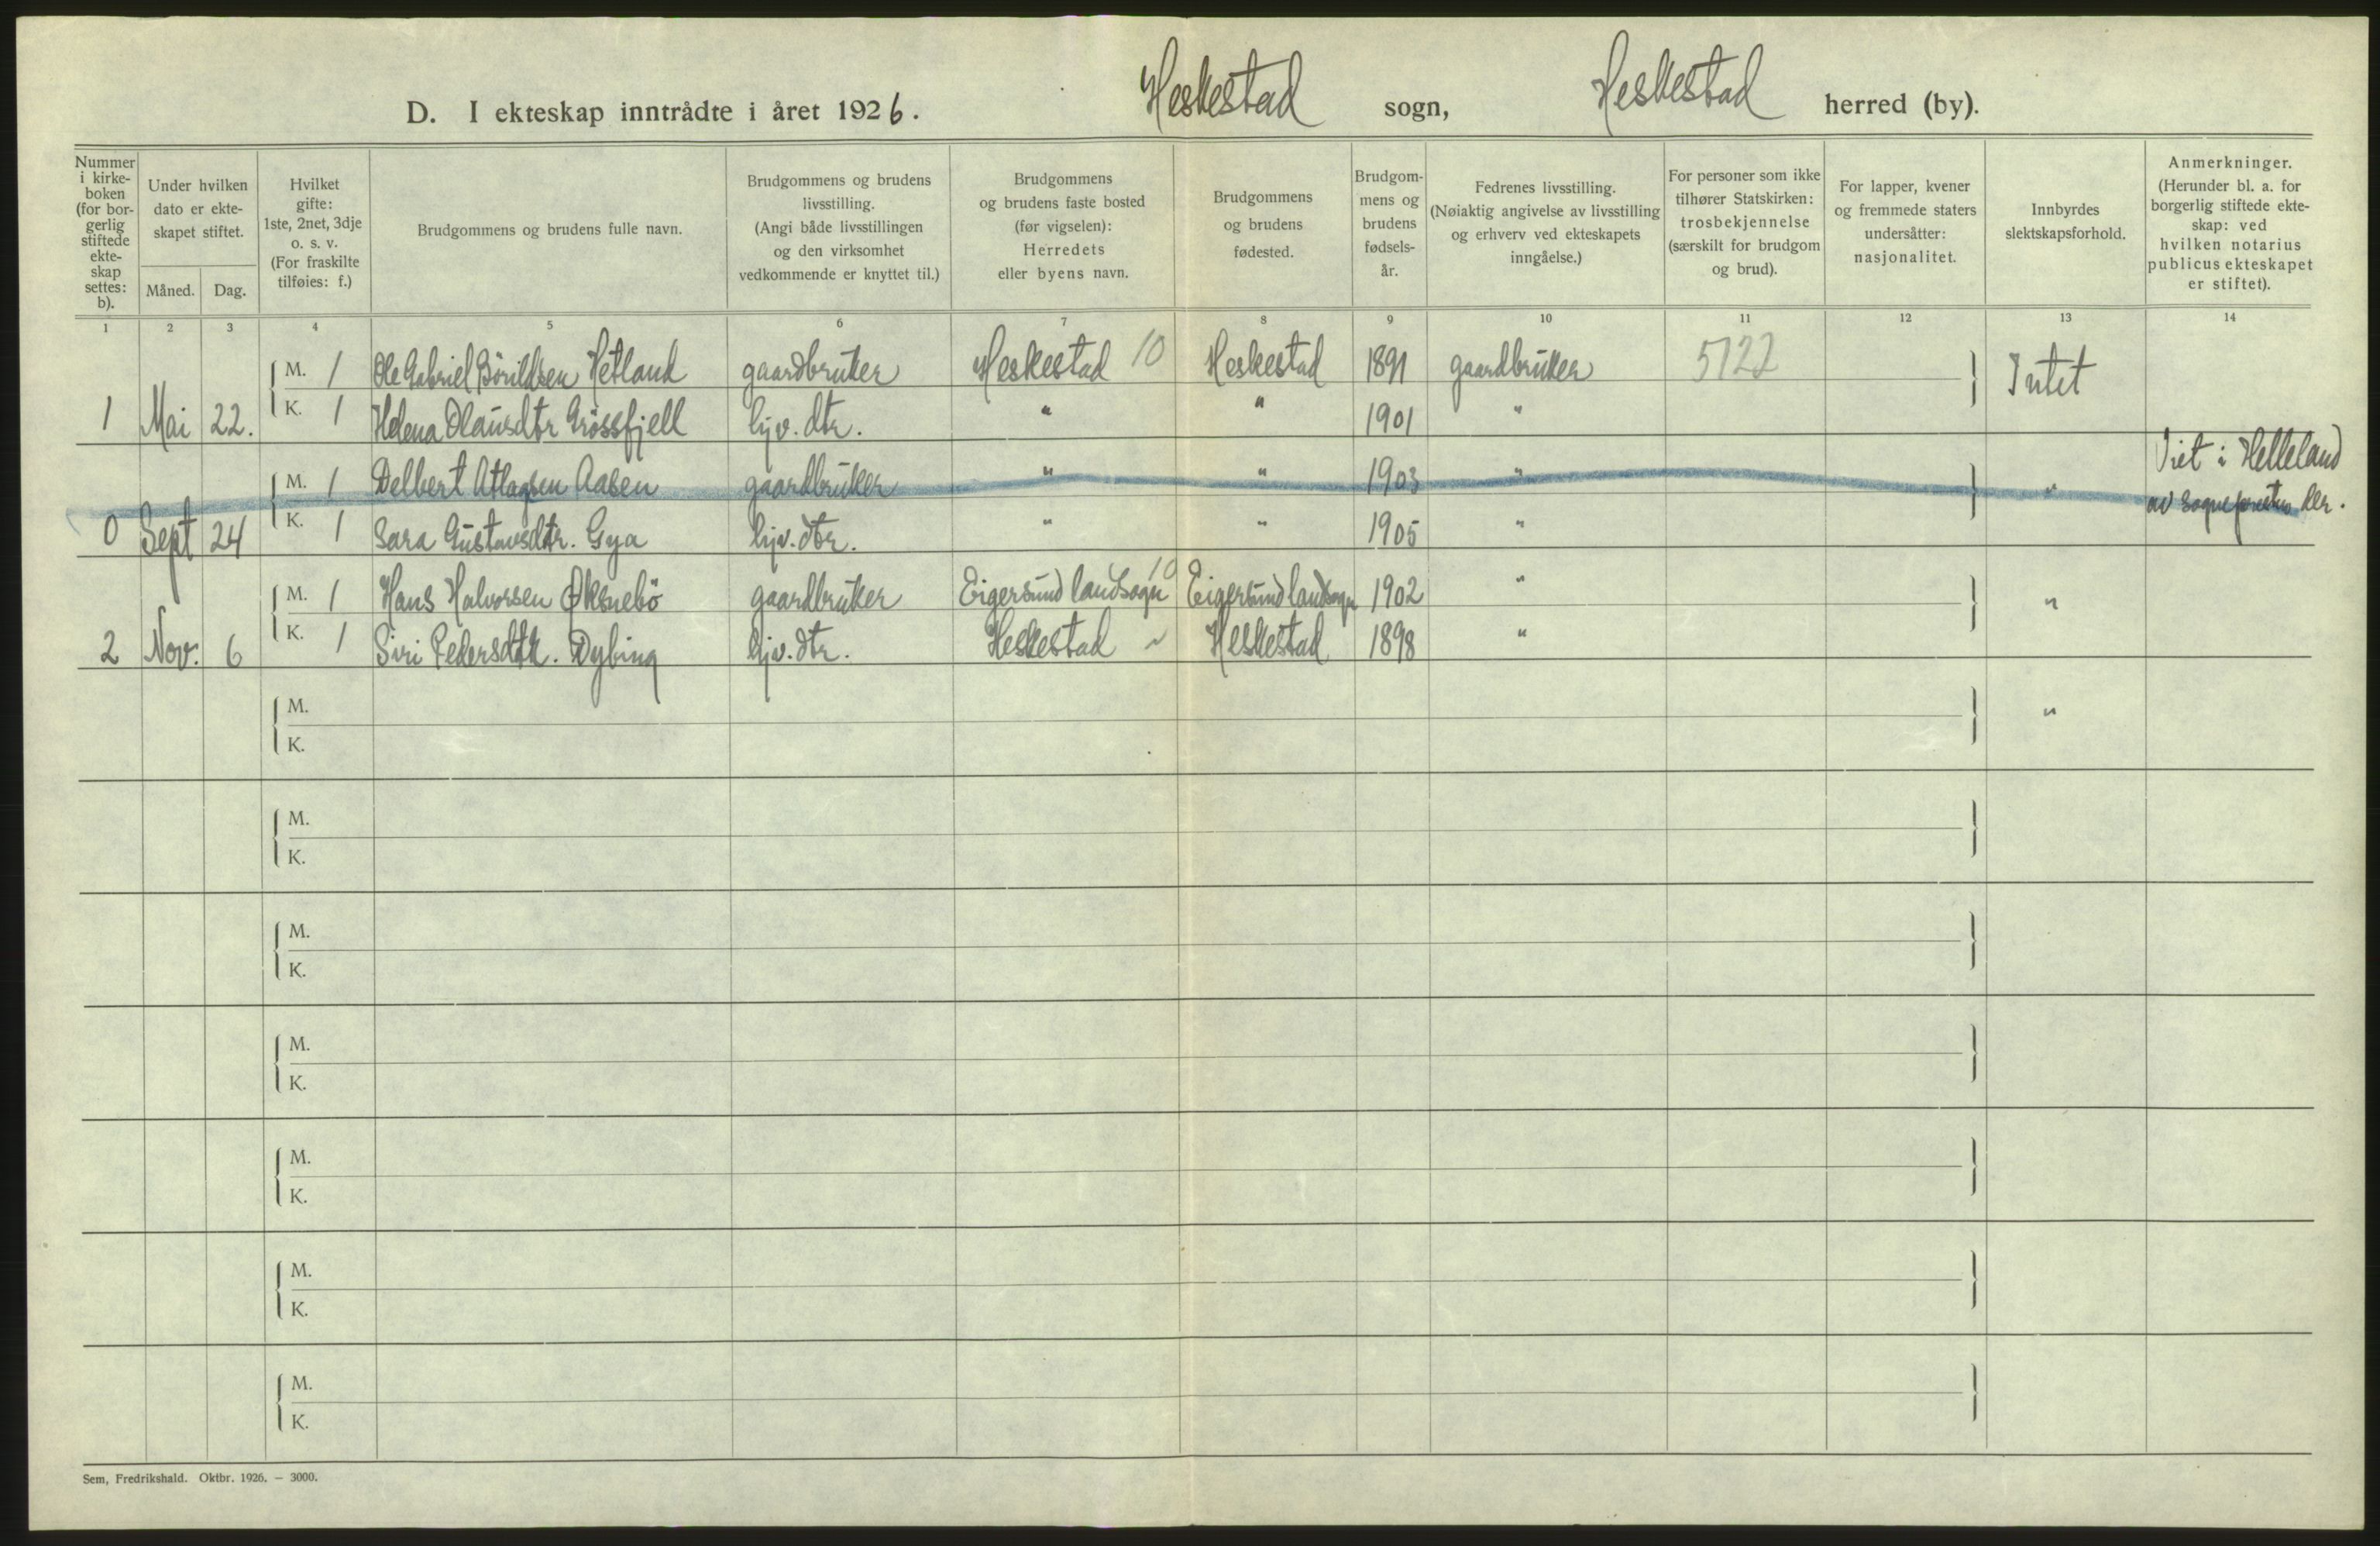 D. I ekteskap inntrådte i året 1926. Heskestad sogn, Heskestad herred (by).
Nummer i kirke- boken (for bor- gerlig stiftede ekte- skap settes: b).
Under hvilken dato er ekte- skapet stiftet.
Måned. Dag.
Hvilket gifte: 1ste, 2net, 3dje o. s. v. (For fraskilte tilføies: f.)
Brudgommens og brudens fulle navn.
Brudgommens og brudens livsstilling. (Angi både livsstillingen og den virksomhet vedkommende er knyttet til.)
Brudgommens og brudens faste bosted (før vigselen): Herredets eller byens navn.
Brudgommens og brudens fødested.
Brudgom- mens og brudens fødsels- år.
Fedrenes livsstilling. (Nøiaktig angivelse av livsstilling og erhverv ved ekteskapets inngåelse.)
For personer som ikke tilhører Statskirken: trosbekjennelse (særskilt for brudgom og brud).
For lapper, kvener og fremmede staters undersåtter: nasjonalitet.
Innbyrdes slektskapsforhold.
Anmerkninger. (Herunder bl. a. for borgerlig stiftede ekte- skap: ved hvilken notarius publicus ekteskapet er stiftet).
1 2 3 4 5 6 7 8 9 10 11 12 13 14
M. 1 Ole Gabriel Börildsen Hetland gaardbruker Heskestad 10 Heskestad 1891 gaardbruker 5122 Intet
1 Mai 22. K. 1 Helena Olausdtr Grössfjell hjv. dtr. " " 1901 "
M. 1 Delbert Atlagsen Aasen gaardbruker " " 1903 " " Viet i Helleland
av sognepresten der.
0 Sept 24 K. 1 Sara Gustavsdtr. Gya hjv. dtr. " " 1905 "
M. 1 Hans Halvorsen Øksnebö gaardbruker Eigersund landsogn 10 Eigersund landsogn 1902 " "
2 Nov. 6 K. 1 Siri Pedersdtr. Dybing hjv. dtr. Heskestad ~ Heskestad 1898 "
M. "
K.
M.
K.
M.
K.
M.
K.
M.
K.
M.
K.
M.
K.
Sem, Fredrikshald. Oktbr. 1926. — 3000.